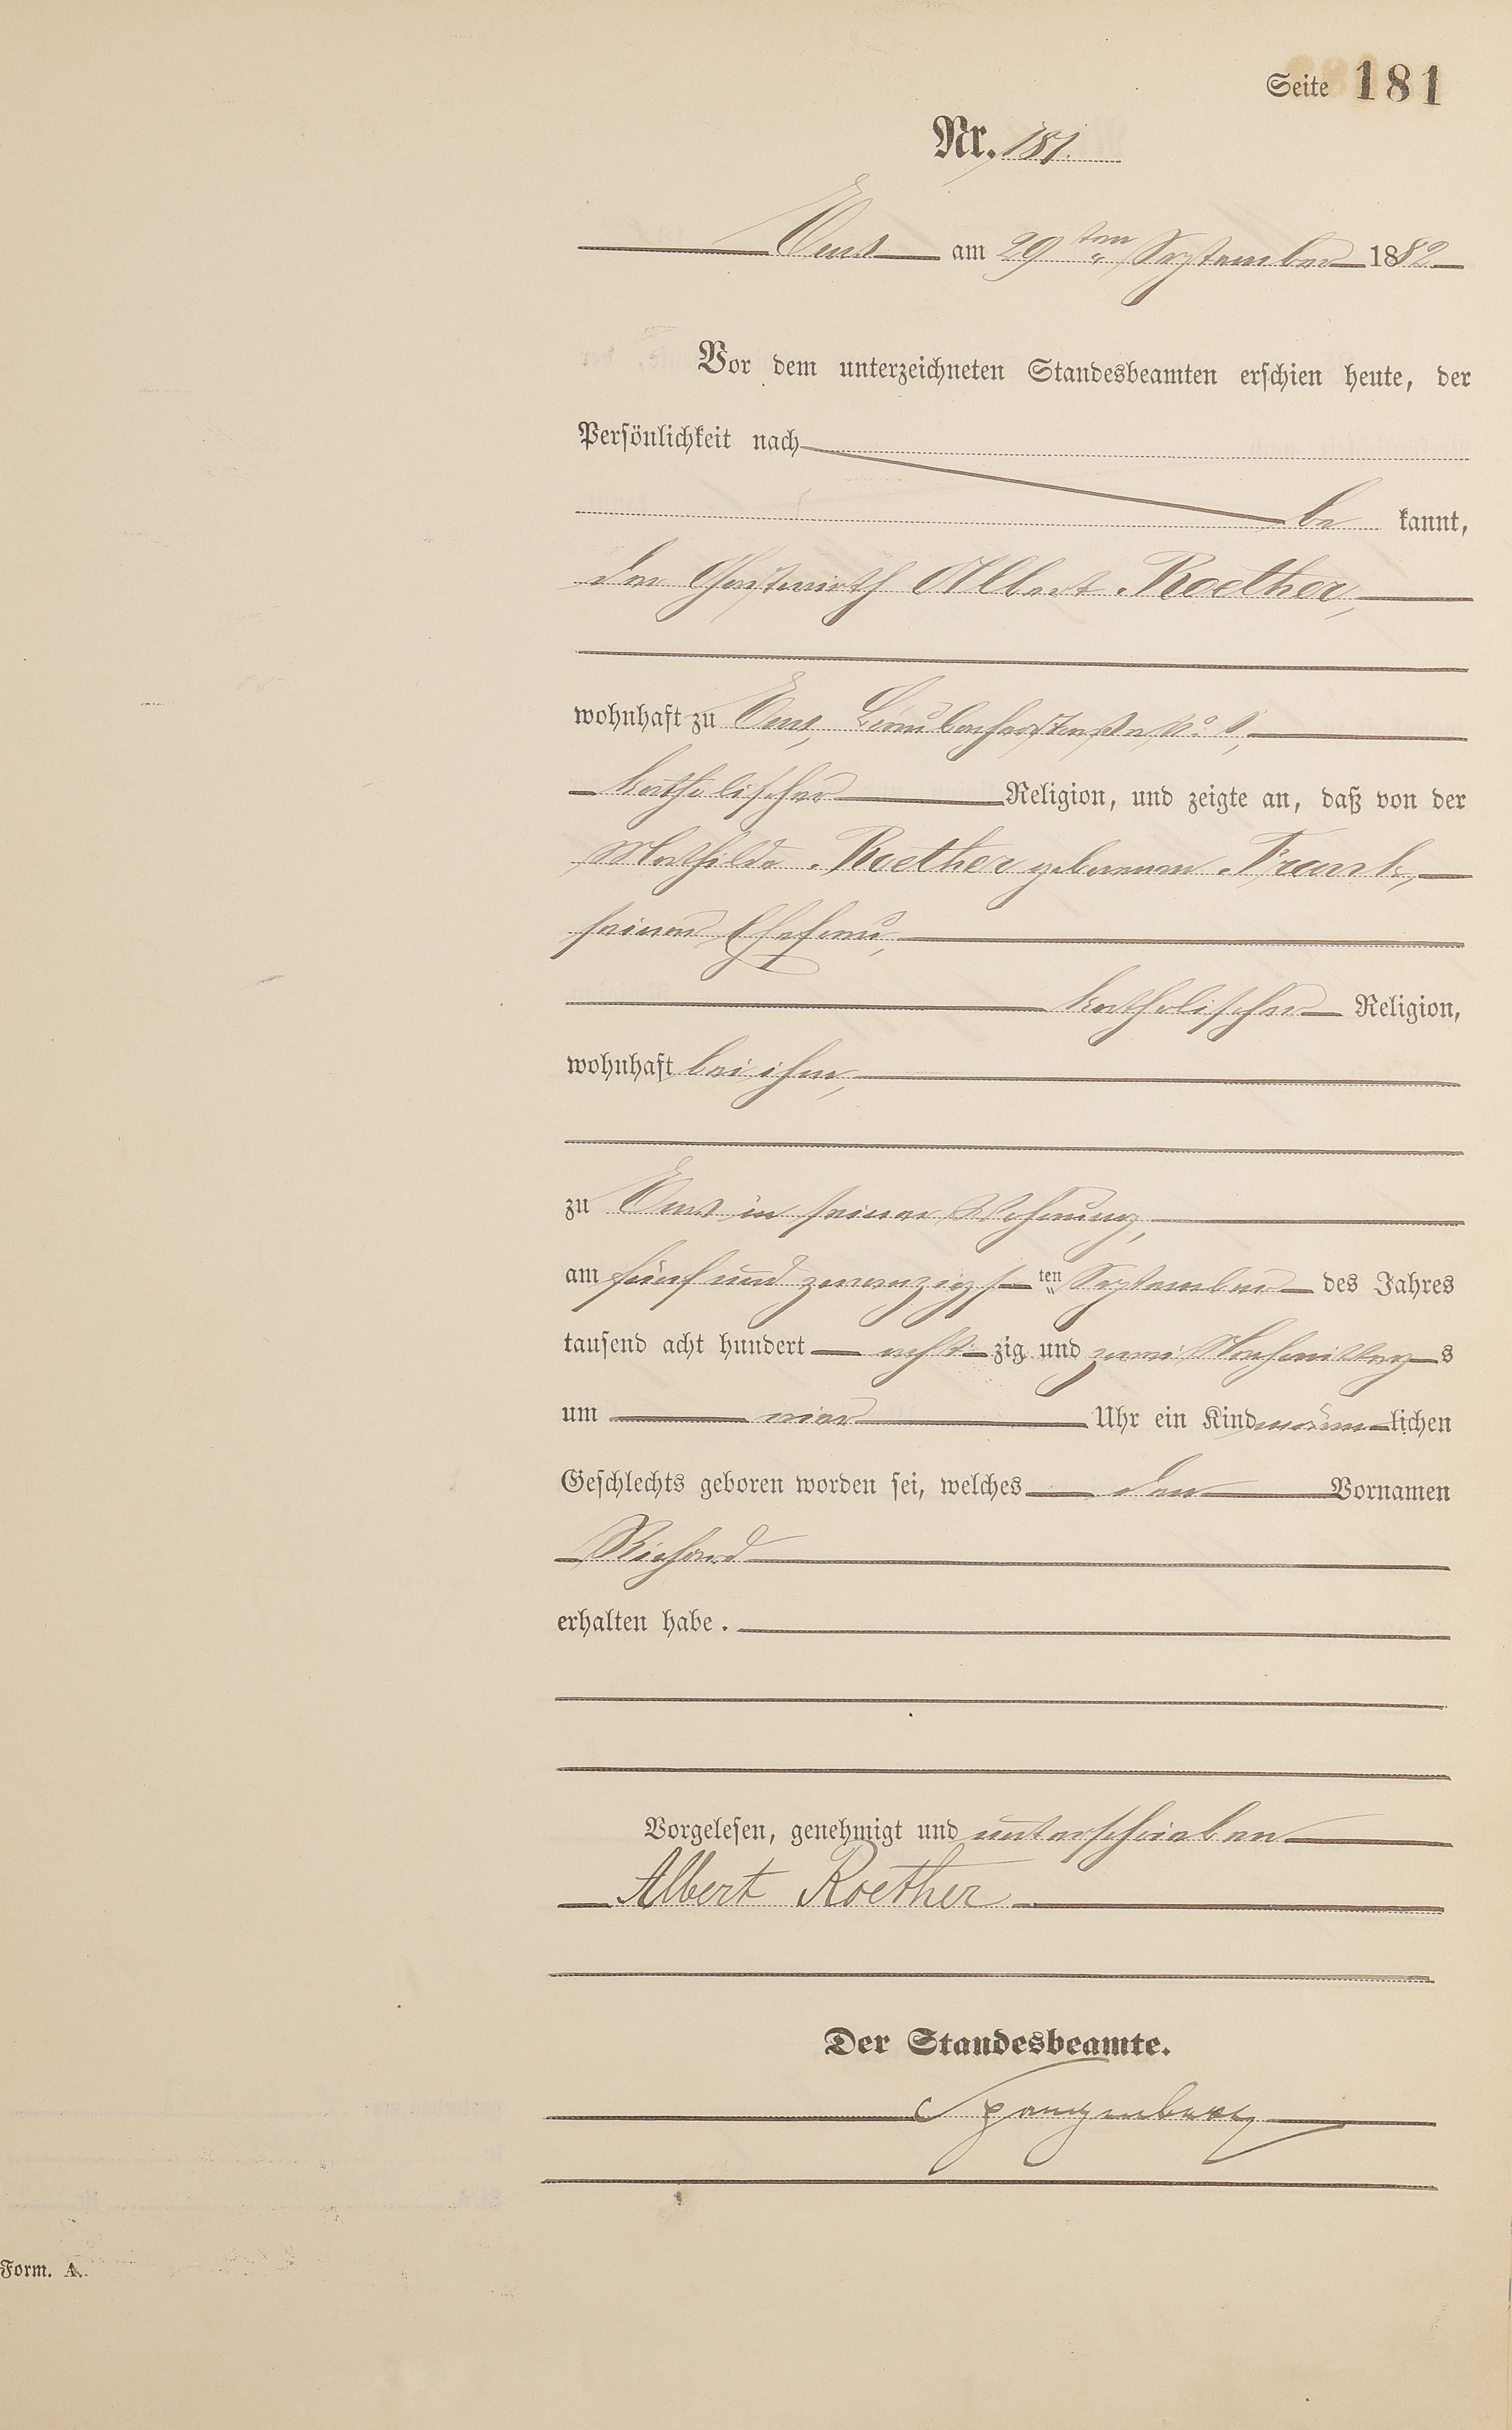 Seite 181
Nr. 181.
Ems am 29ten September 1882
Vor dem unterzeichneten Standesbeamten erschien heute, der
Persönlichkeit nach
be kannt,
der Gastwirth Albert Roether,
wohnhaft zu Ems, No.
katholischer Religion, und zeigte an, daß von der
Mathilde Roether geborenen Frank,
seiner Ehefrau,
katholischer Religion,
wohnhaft bei ihm,
zu Ems in seiner Wohnung,
am fünf und zwanzigs ten September des Jahres
tausend acht hundert acht zig und zwei Nachmittag s
um vier Uhr ein Kind männ lichen
Geschlechts geboren worden sei, welches den Vornamen
Richard
erhalten habe.
Vorgelesen, genehmigt und unterschrieben
Albert Roether
Der Standesbeamte.
Spangenberg
Form. A.